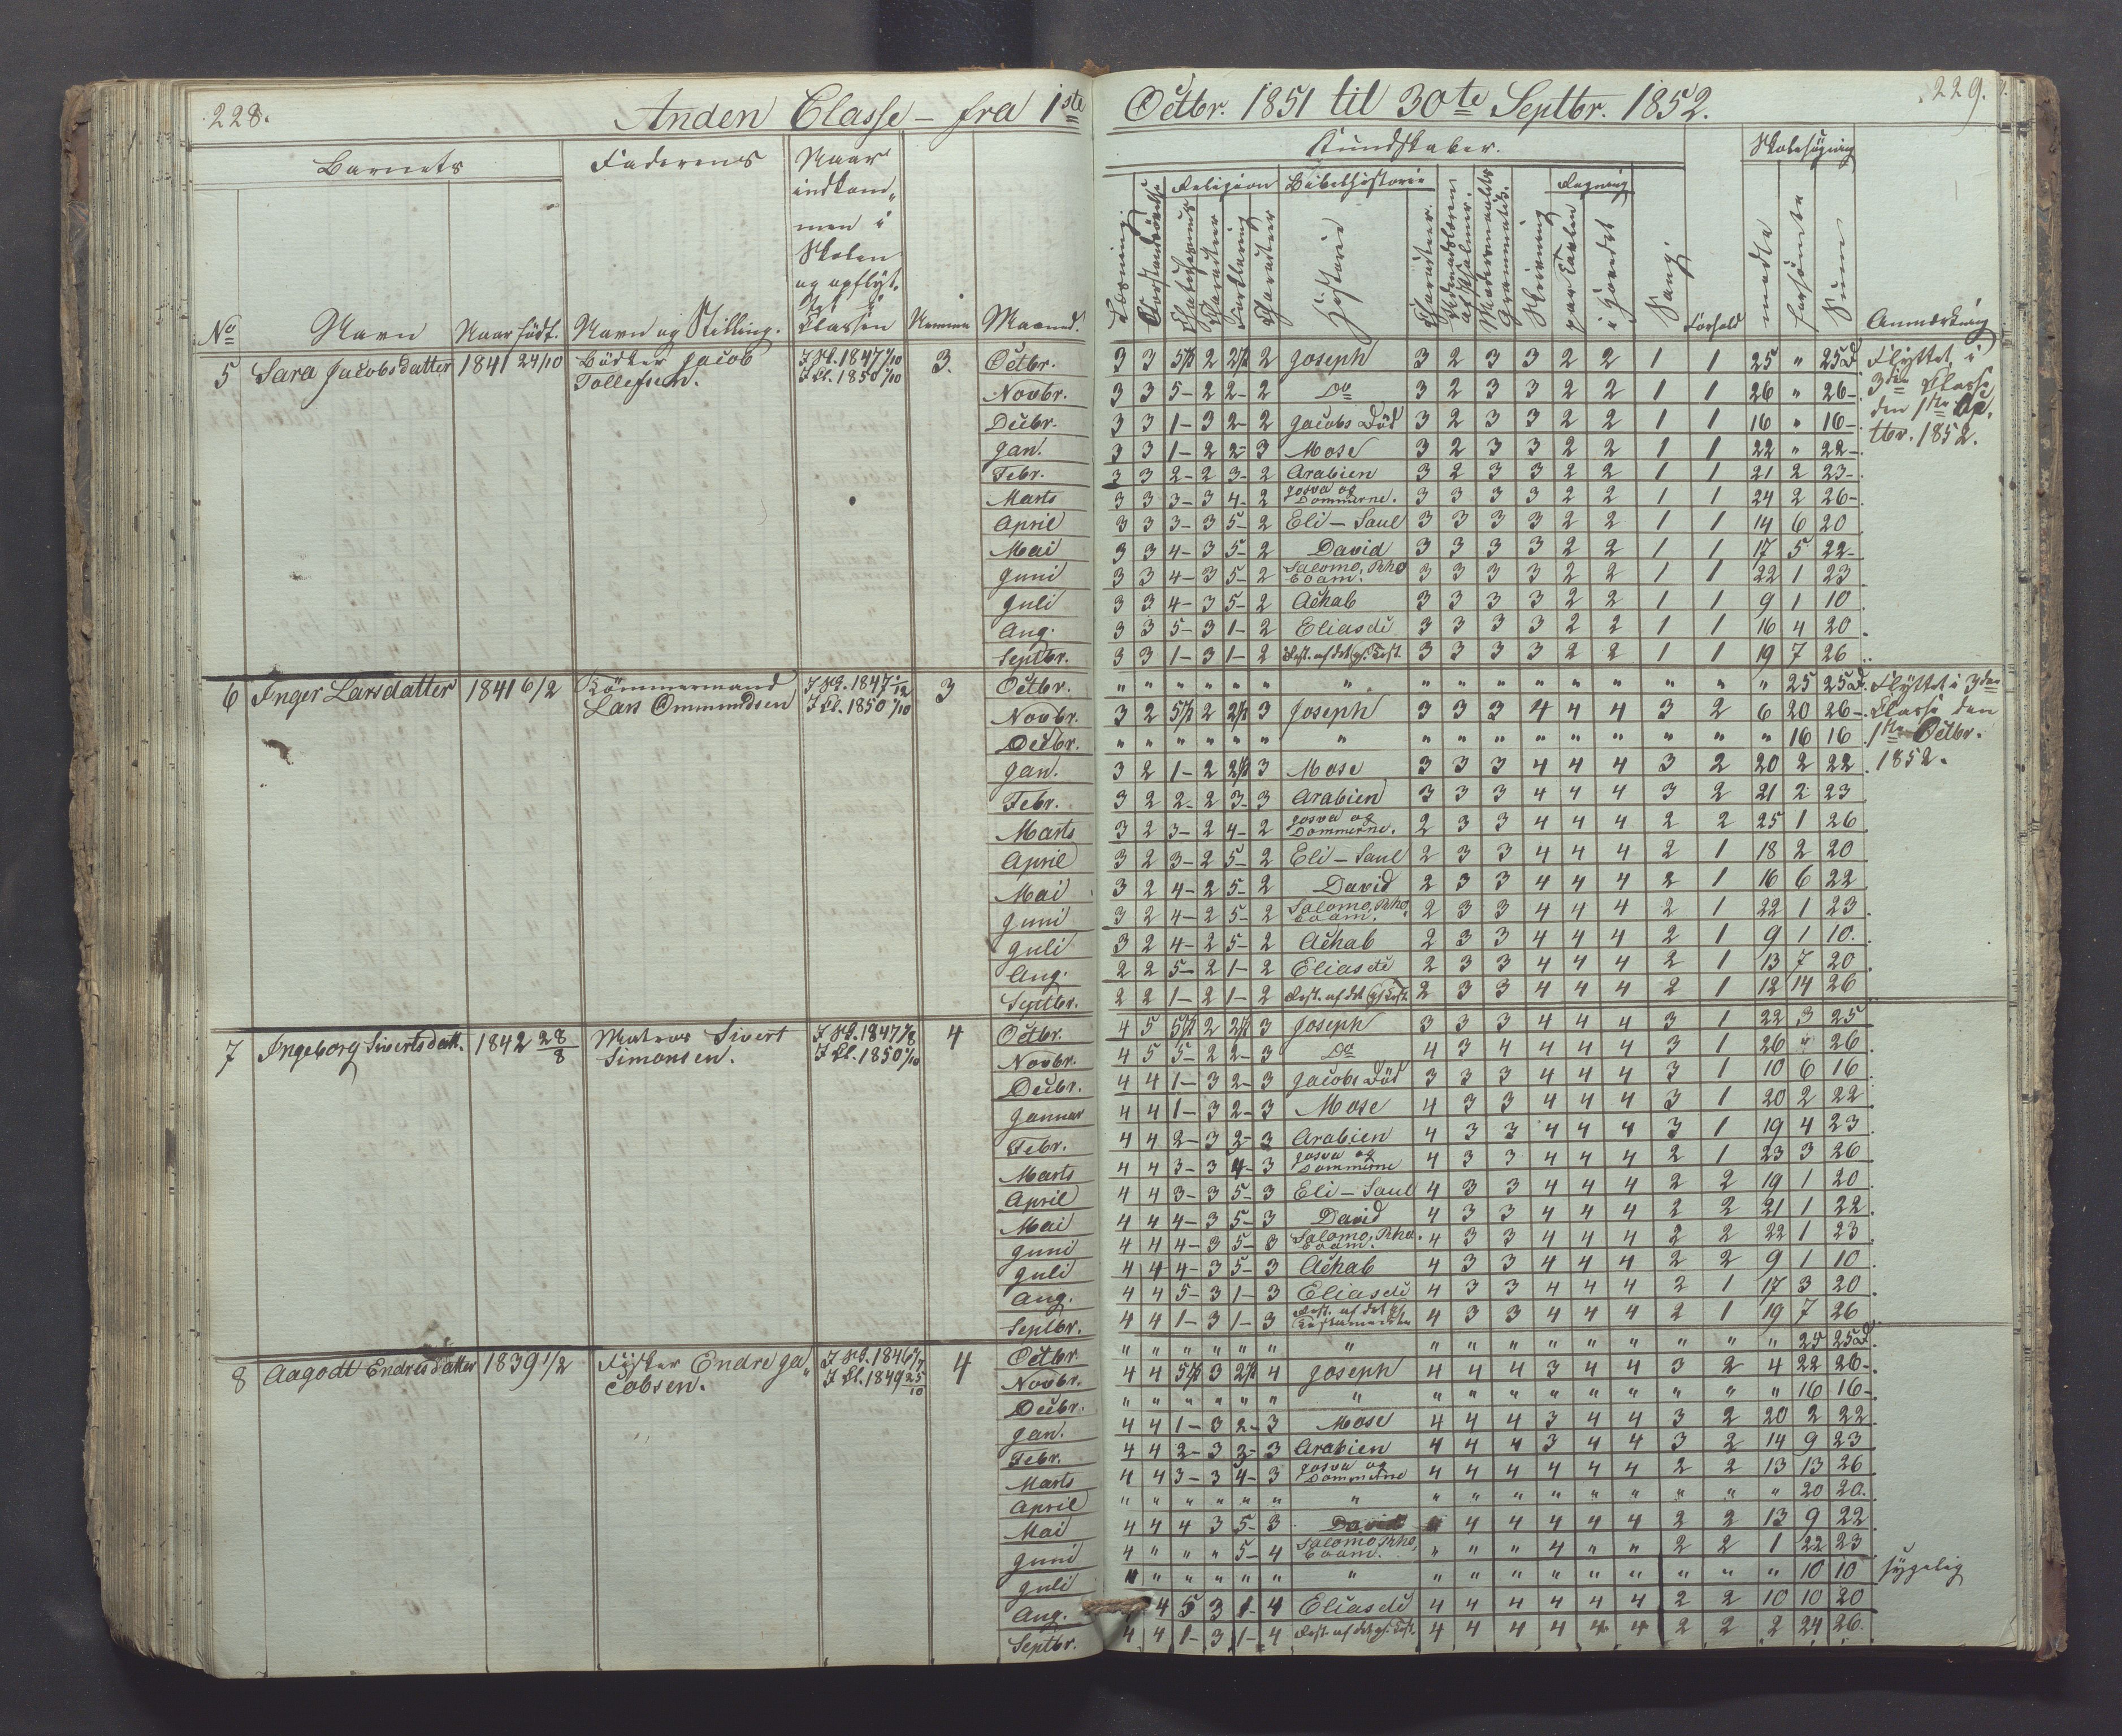 228.
Anden Classe – fra 1ste
Octbr. 1851 til 30te Septbr. 1852.
229.
Barnets
Faderens
Naar
indkom„
men i
Skolen
og opflyt„
Classen
No
Navn
Naar født.
Navn og Stilling.
Maaned.
Kundskaber.
Skolesøgning
Religion
Bibelhistorie
Regning
Læsning.
Historie
Skrivning
paa Tavlen
i Hovedet
Sang
Forhold
mødte
forsømte
Sum
Anmærkning
5 Sara Jacobsdatter 1841 24/10 Bødker Jacob
Tollefsen.
I Sk. 1847
I Cl. 1850 1/10
3.
Octbr. 3 3 5 2 2 2 Joseph 3 2 3 3 2 2 1 1 25 „ 25 D.
Novbr. 3 3 5- 2 2- 2 Do 3 2 3 3 2 2 1 1 26 „ 26-
Decbr. 3 3 1- 3 2- 2 Jacobs Død 3 2 3 3 2 2 1 1 16 „ 16-
Jan. 3 3 1- 2 2- 3 Mose 3 2 3 3 2 2 1 1 22 „ 22-
Febr. 3 3 2- 2 3- 2 Arabien 3 2 3 3 2 2 1 1 21 2 23-
Marts 3 3 3- 3 4- 2 Josva og Dommerne. 3 3 3 3 2 2 1 1 24 2 26-
April 3 3 3- 3 5- 2 Eli – Saul 3 3 3 3 2 2 1 1 14 6 20
Mai 3 3 4- 3 5- 2 David 3 3 3 3 2 2 1 1 17 5 22-
Juni 3 3 4- 3 5- 2 Salomo, Rhoboam. 3 3 3 3 2 2 1 1 22 1 23
Juli 3 3 4- 3 5- 2 Achab 3 3 3 3 2 2 1 1 9 1 10
Aug. 3 3 5- 3 1- 2 Elias 3 3 3 3 2 2 1 1 16 4 20
Septbr. 3 3 1- 3 1- 2 Rest. af det gl. Test. 3 3 3 3 2 2 1 1 19 7 26
Flyttet i
3die Classe
den 1ste Oc„
tbr. 1852.
6 Inger Larsdatter 1841 6/2 Tømmermand
Lars Ommundsen
I Sk. 1847 1/12
I Cl. 1850 1/10
3
Octbr. „ „ „ „ „ „ „ „ „ „ „ „ „ „ „ „ 25 25 D.
Novbr. 3 2 5 2 2 3 Joseph 3 3 3 4 4 4 3 2 6 20 26-
Decbr. „ „ „ „ „ „ „ „ „ „ „ „ „ „ „ „ 16 16
Jan. 3 2 1- 2 2 3 Mose 3 3 3 4 4 4 3 2 20 2 22
Febr. 3 2 2- 2 3- 3 Arabien 3 3 3 4 4 4 3 2 21 2 23
Marts 3 2 3- 2 4- 2 Josva og Dommerne. 2 3 3 4 4 4 2 2 25 1 26
April 3 2 3- 2 5- 2 Eli – Saul 2 3 3 4 4 4 2 1 18 2 20
Mai 3 2 4- 2 5- 2 David 2 3 3 4 4 4 2 1 16 6 22
Juni 3 2 4- 2 5- 2 Salomo, Rhoboam. 2 3 3 4 4 4 2 1 22 1 23
Juli 3 2 4- 2 5- 2 Achab 2 3 3 4 4 4 2 1 9 1 10.
Aug. 2 2 5- 2 1- 2 Elias 2 3 3 4 4 4 2 1 13 7 20
Septbr. 2 2 1- 2 1- 2 Rest. af det gl. Test. 2 3 3 4 4 4 2 1 12 14 26
Flyttet i 3die
Classe den
1ste Octbr.
1852.
7 Ingeborg Sivertsdatt. 1842 28/8 Matros Sivert
Simonsen.
I Sk. 1847
I Cl. 1850 1/10
4
Octbr. 4 5 5 2 2 3 Joseph 3 3 3 4 4 4 3 1 22 3 25
Novbr. 4 5 5- 2 2- 3 Do 4 3 4 4 4 4 3 1 26 „ 26
Decbr. 4 4 1- 3 2- 3 Jacobs Død 3 3 3 4 4 4 3 1 10 6 16
Januar 4 4 1- 3 2- 3 Mose 4 3 3 4 4 4 3 1 20 2 22
Febr. 4 4 2- 3 2- 3 Arabien 4 3 3 4 4 4 3 1 19 4 23
Marts 4 4 3- 3 4- 3 Josva og Dommerne 4 3 3 4 4 4 2 1 23 3 26
April 4 4 3- 3 5- 3 Eli – Saul 4 3 3 4 4 4 2 2 19 1 20
Mai 4 4 4- 3 5- 3 David 4 3 3 4 4 4 2 2 21 1 22
Juni 4 4 4- 3 5- 3 Salomo, Rhoboam. 4 3 3 4 4 4 2 2 22 1 23
Juli 4 4 4- 3 5- 3 Achab 4 3 3 4 4 4 2 2 9 1 10
Aug. 4 4 5- 3 1- 3 Elias 4 3 3 4 4 4 2 1 17 3 20
Septbr. 4 4 1- 3 1- 3 Rest. af det gl. Testamentet 4 3 3 4 4 4 2 1 19 7 26
8 Aagodt Endresdatter 1839 1/2 Fisker Endre Ja„
cobsen.
I Sk. 1846
I Cl. 1849 25/10
4
Octbr „ „ „ „ „ „ „ „ „ „ „ „ „ „ „ „ 25 25 D.
Novbr. 4 4 5 3 2 4 Joseph 4 4 4 3 4 4 3 2 4 22 26-
Decbr. „ „ „ „ „ „ „ „ „ „ „ „ „ „ „ „ 16 16-
Jan. 4 4 1- 3 2- 3 Mose 4 4 4 3 4 4 3 2 20 2 22
Febr. 4 4 2- 3 3- 3 Arabien 4 4 4 3 4 4 3 2 14 9 23
Marts 4 4 3- 3 4- 3 Josva og Dommerne 4 4 4 4 4 4 2 2 13 13 26
April „ „ „ „ „ „ „ „ „ „ „ „ „ „ „ „ 20 20.
Mai 4 4 4 3 5- 3 David 4 4 4 4 4 4 2 2 13 9 22
Juni 4 „ „ „ 5- 4 Salomo Rhoboam. „ „ „ 4 „ „ 2 2 1 22 23
Juli „ „ „ „ „ „ „ „ „ „ „ „ „ „ „ „ 10 10 sygelig
Aug. 4 5 3 1- 4 Elias 4 4 4 4 4 4 2 2 10 10 20
Septbr. 4 4 1- 3 1- 4 Rest. af det gl. Test. 4 4 4 4 4 4 2 2 2 24 26.